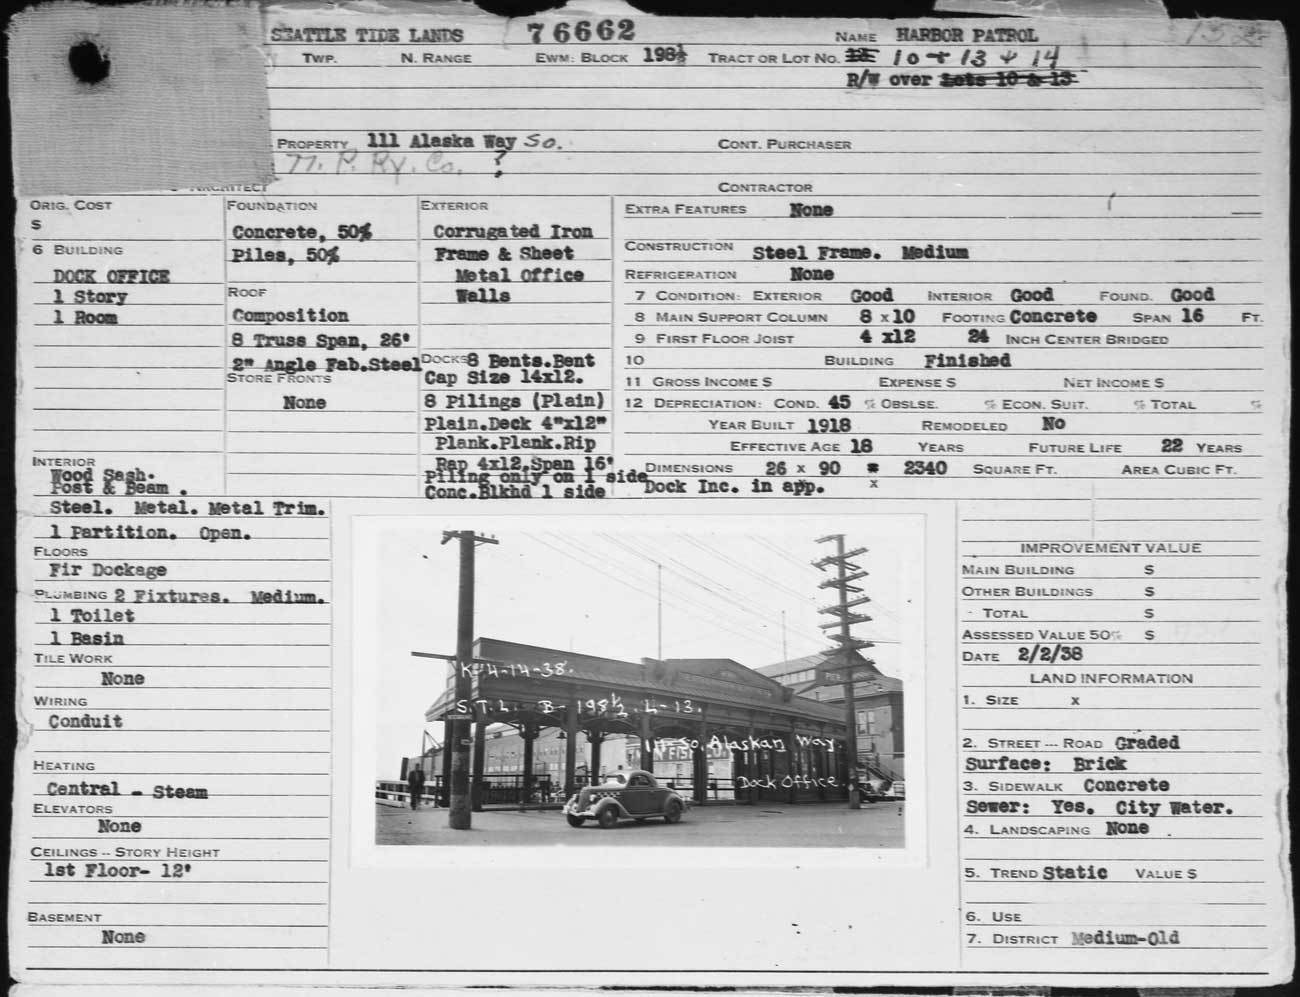 SEATTLE TIDE LANDS 76662 NAME HARBOR PATROL
TWP. N. RANGE EWM: BLOCK 198½ TRACT OR LOT NO. 10 + 13 + 14
R/W over Lots 10 & 13
PROPERTY 111 Alaska Way So. CONT. PURCHASER
N. P. Ry. Co. ?
ARCHITECT CONTRACTOR
ORIG. COST
$
6 BUILDING
DOCK OFFICE
1 Story
1 Room
INTERIOR
Wood Sash.
Post & Beam .
Steel. Metal. Metal Trim.
1 Partition. Open.
FLOORS
Fir Dockage
PLUMBING 2 Fixtures. Medium.
1 Toilet
1 Basin
TILE WORK
None
WIRING
Conduit
HEATING
Central - Steam
ELEVATORS
None
CEILINGS -- STORY HEIGHT
1st Floor- 12'
BASEMENT
None
FOUNDATION
Concrete, 50%
Piles, 50%
ROOF
Composition
8 Truss Span, 26'
2" Angle Fab.Steel
STORE FRONTS
None
EXTERIOR
Corrugated Iron
Frame & Sheet
Metal Office
Walls
DOCKS 8 Bents.Bent
Cap Size 14x12.
8 Pilings (Plain)
Plain.Deck 4"x12"
Plank.Plank.Rip
Rap 4x12.Span 16'
Piling only on 1 side
Conc.Blkhd 1 side
EXTRA FEATURES None
CONSTRUCTION Steel Frame. Medium
REFRIGERATION None
7 CONDITION: EXTERIOR Good INTERIOR Good FOUND. Good
8 MAIN SUPPORT COLUMN 8 x 10 FOOTING Concrete SPAN 16 FT.
9 FIRST FLOOR JOIST 4 x12 24 INCH CENTER BRIDGED
10 BUILDING Finished
11 GROSS INCOME $ EXPENSE $ NET INCOME $
12 DEPRECIATION: COND. 45 % OBSLSE. % ECON. SUIT. % TOTAL %
YEAR BUILT 1918 REMODELED No
EFFECTIVE AGE 18 YEARS FUTURE LIFE 22 YEARS
DIMENSIONS 26 x 90 = 2340 SQUARE FT. AREA CUBIC FT.
Dock Inc. in app. x
K-4-14-38.
S.T.L. B- 198½. L-13.
So. Alaskan Way.
Dock Office.
IMPROVEMENT VALUE
MAIN BUILDING $
OTHER BUILDINGS $
TOTAL $
ASSESSED VALUE 50% $
DATE 2/2/38
LAND INFORMATION
1. SIZE x
2. STREET --- ROAD Graded
Surface: Brick
3. SIDEWALK Concrete
Sewer: Yes. City Water.
4. LANDSCAPING None .
5. TREND Static VALUE $
6. USE
7. DISTRICT Medium-Old